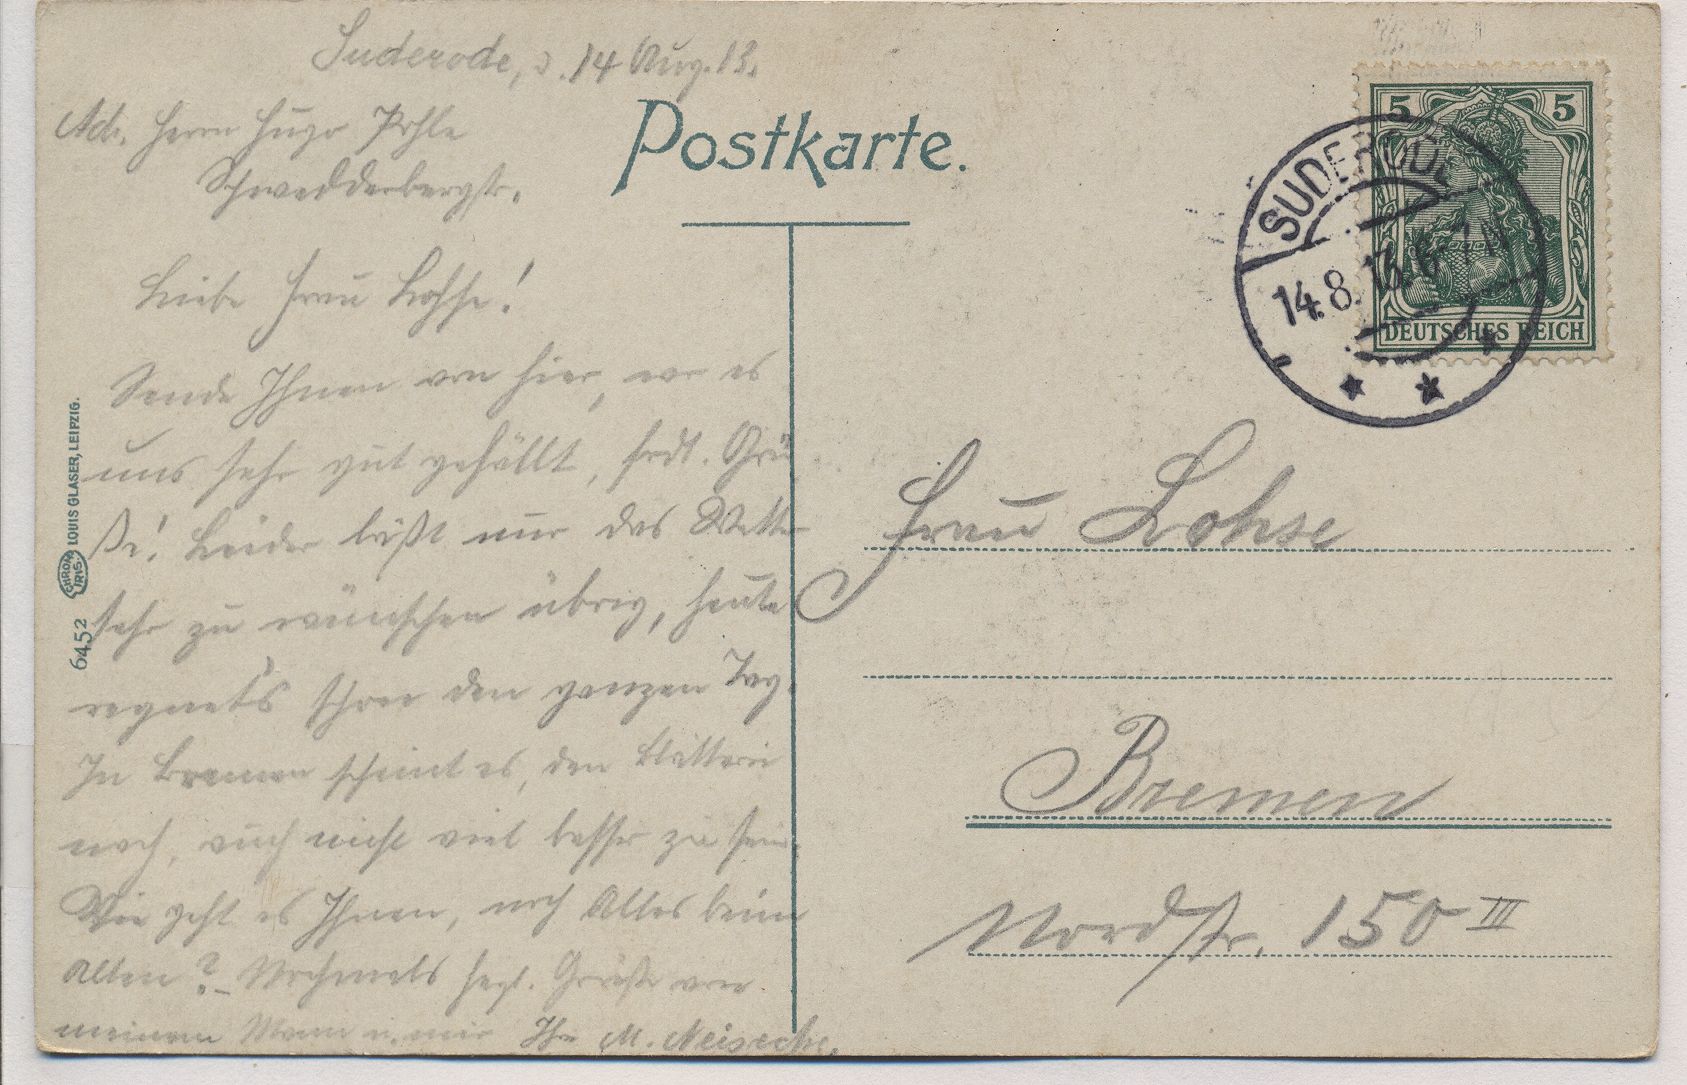 Suderode, d. 14 Aug. 13.
Adr. Herrn Hugo Pohle
Schwedderbergstr.
Postkarte.
Liebe Frau Lohse!
Sende Ihnen von hier, wo es
uns sehr gut gefällt, frdl. Grü
ße! Leider läßt nur das Wetter
sehr zu wünschen übrig, heute
regnet's schon den ganzen Tag.
In Bremen scheint es, den Blättern
nach, auch nicht viel besser zu sein.
Wie geht es Ihnen, noch Alles beim
Alten? – Nochmals hzl. Grüße von
meinem Mann u. mir Ihre M. Neisecke.
6452 CHROM IRIS LOUIS GLASER, LEIPZIG.
5 5
DEUTSCHES REICH
SUDERODE
14.8.13. 6-7 N
Frau Lohse
Bremen
Nordstr. 150 III